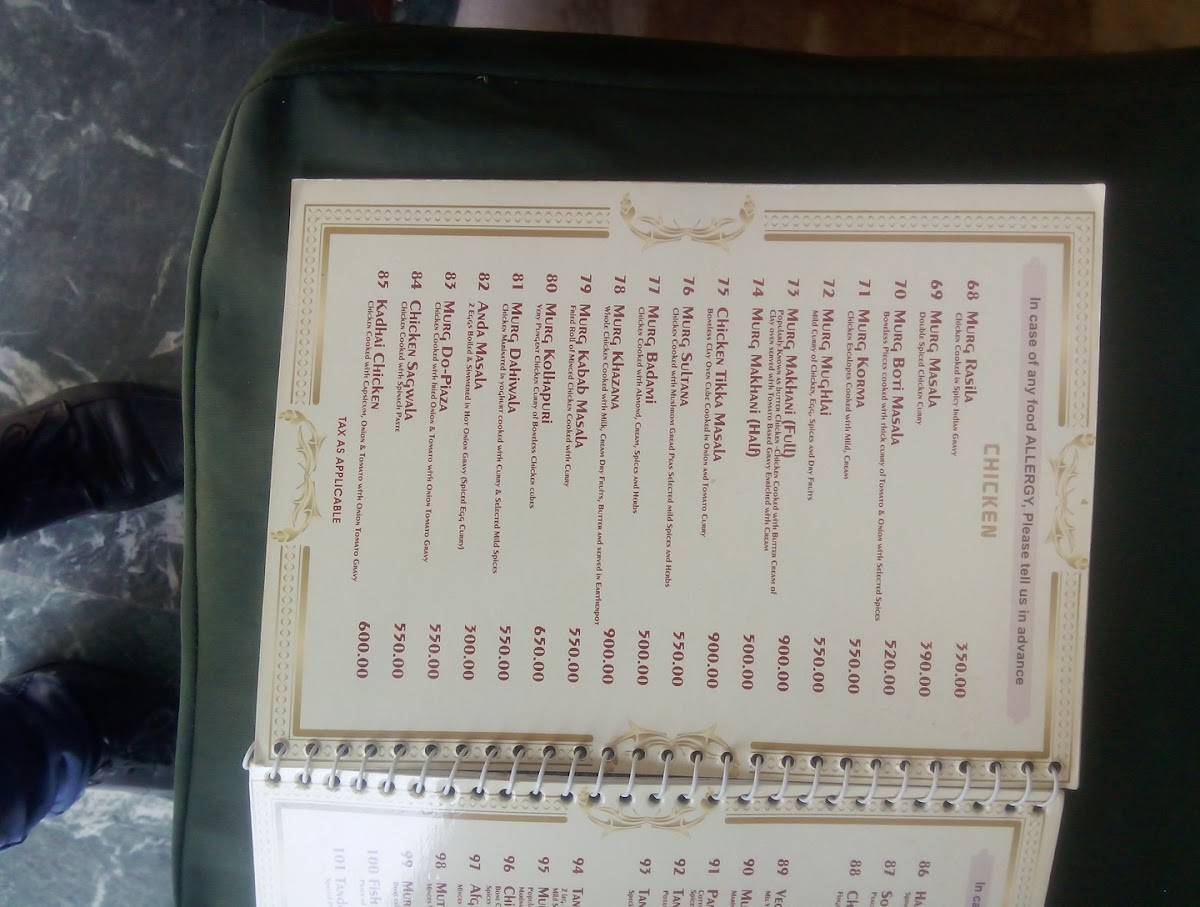 In case of any food ALLERGY, Please tell us in advance
CHICKEN
68 Murg Rasila 350.00
Chicken Cooked in Spicy Indian Gravy
69 Murg Masala 390.00
Double Spiced Chicken Curry
70 Murg Boti Masala 520.00
Boneless Pieces cooked with thick curry of Tomato & Onion with Selected Spices
71 Murg Korma 550.00
Chicken Escalopes Cooked with Mild, Cream
72 Murg Mughlai 550.00
Mild Curry of Chicken, Egg, Spices and Dry Fruits
73 Murg Makhani (Full) 900.00
Popularly Known as butter Chicken -Chicken Cooked with Butter Cream of
Clay oven sanved with Tomato Based Gravy Enriched with Cream
74 Murg Makhani (Half) 500.00
75 Chicken Tikka Masala 900.00
Boneless Clay Oven Cube Cooked in Onion and Tomato Curry
76 Murg Sultana 550.00
Chicken Cooked with Mushrom Gread Peas Selected Mild Spices and Herbs
77 Murg Badami 500.00
Chicken Cooked with Almond, Cream, Spices and Herbs
78 Murg Khazana 900.00
Whole Chicken Cooked with Milk, Cream Dry Fruits, Butter and served in Earthenpot
79 Murg Kabab Masala 550.00
Fried Roll of Minced Chicken Cooked with Curry
80 Murg Kolhapuri 650.00
Very Pungent Chicken Curry of Boneless Chicken cubes
81 Murg Dahiwala 550.00
Chicken Marinated in yoghurt cooked with Curry & Selected Mild Spices
82 Anda Masala 300.00
2 Eggs Boiled & Simmered in Hot Onion Gravy (Spiced Egg Curry)
83 Murg Do-Piaza 550.00
Chicken Cooked with fried Onion & Tomato with Onion Tomato Gravy
84 Chicken Sagwala 550.00
Chicken Cooked with Spinach Paste
85 Kadhai Chicken 600.00
Chicken Cooked with Capsicum, Onion & Tomato with Onion Tomato Gravy
TAX AS APPLICABLE
In ca
86 Ha
87 So
88 Ch
89 Veg
90 Mu
91 Pa
92 Tan
93 Tan
94 Tan
95 Mu
96 Chi
97 Afg
98 Mut
99 Mur
100 Fish
101 Tand